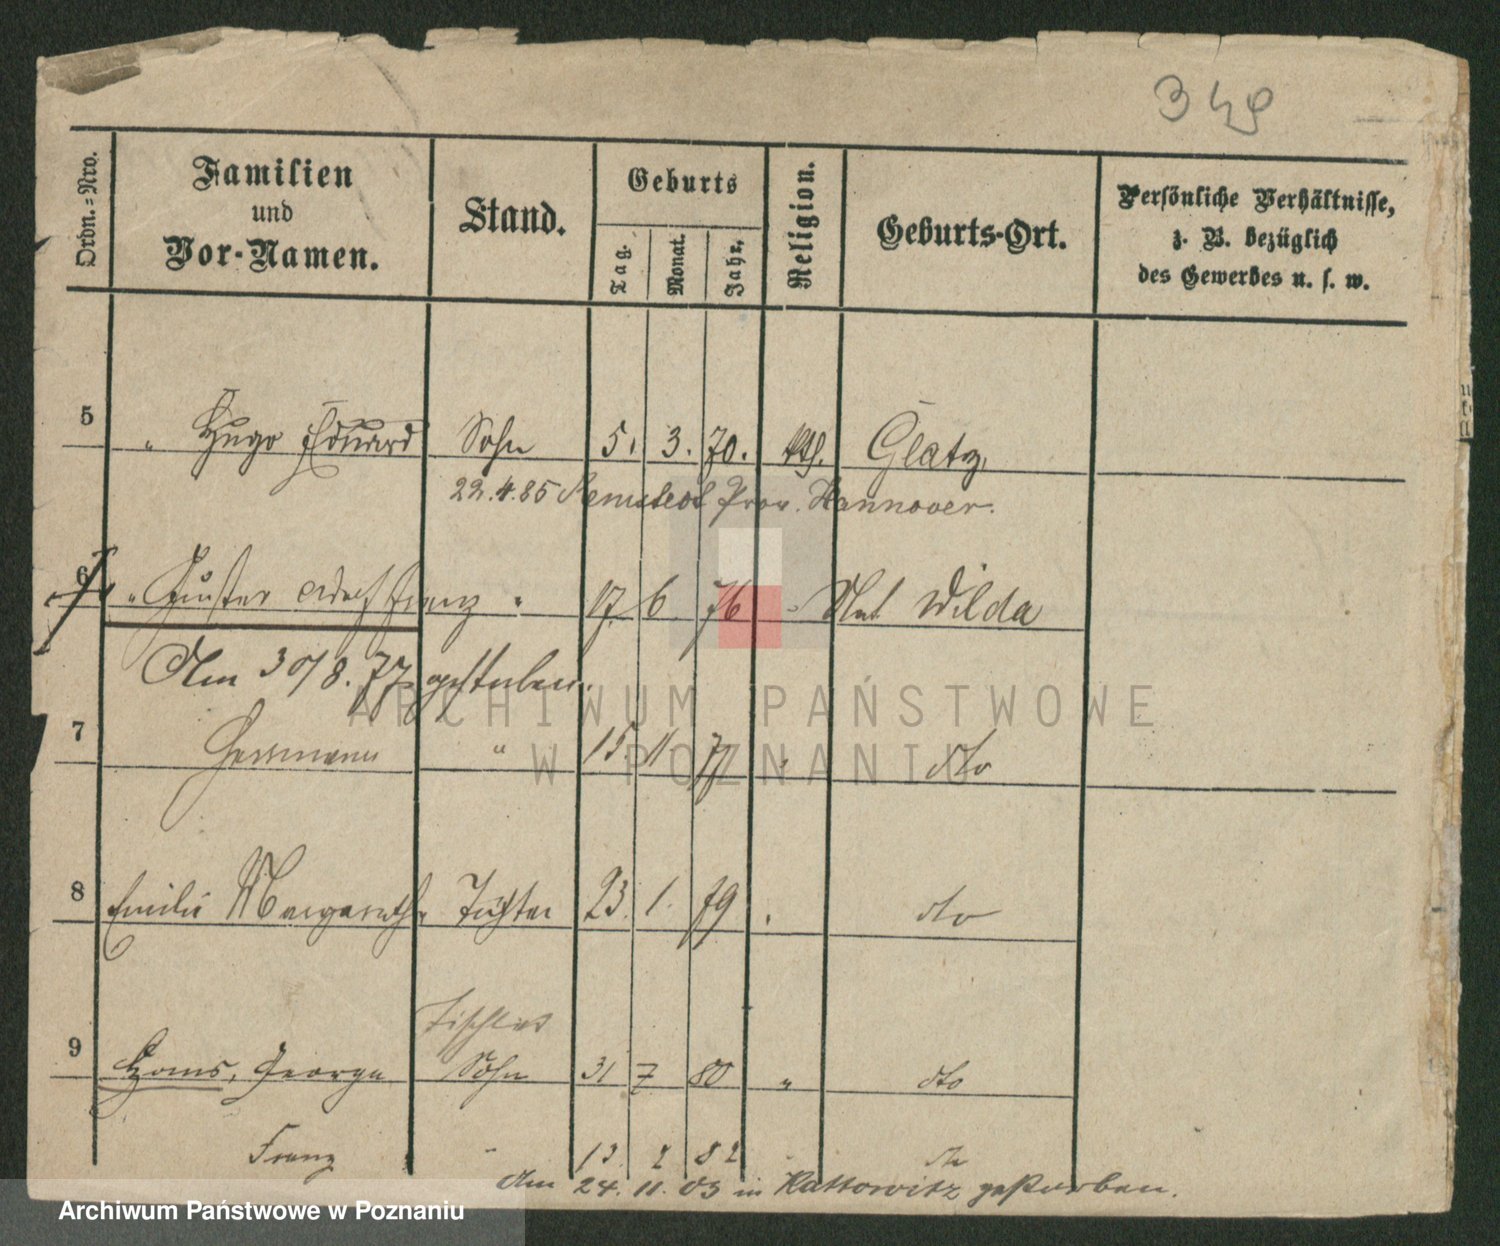 349
Ordn.-Nro.
Familien
und
Vor-Namen.
Stand.
Geburts
Tag.
Monat.
Jahr.
Religion.
Geburts-Ort.
Persönliche Verhältnisse,
z. B. bezüglich
des Gewerbes u. s. w.
5 " Hugo Eduard Sohn 5. 3. 70. kth. Glatz.
22.4.85 Prov. Hannover.
6 " Gustav Adolf Franz " 17. 6 76 " Wilda
Am 30/8. 77 gestorben.
7 Herrmann " 15. 11 77 " dto
8 Emilie Margareth Tochter 23. 1. 79 " dto
Tischler
9 Homs, George Sohn 31 7 80 " dto
Franz " 13 2 82 " dto
Am 24. 11. 03 in Kattowitz gestorben.
ARCHIWUM PAŃSTWOWE
W POZNANIU
Archiwum Państwowe w Poznaniu